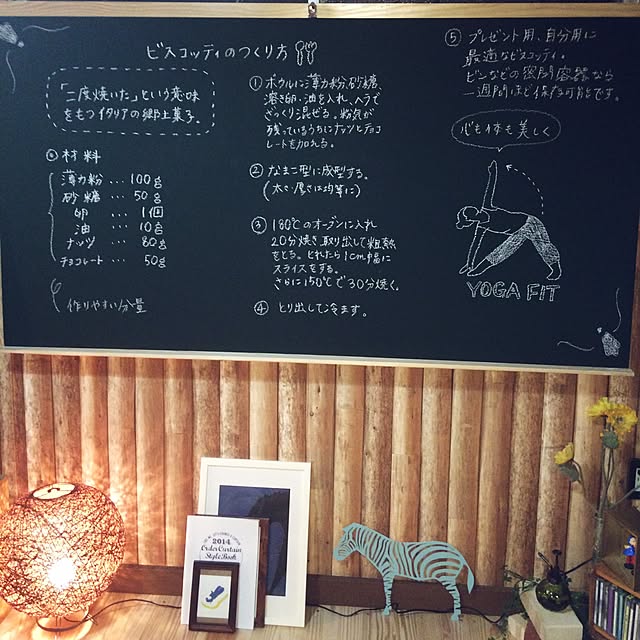 ビスコッティのつくり方
「二度焼いた」という意味
をもつイタリアの郷土菓子。
◎材料
薄力粉 … 100g
砂糖 … 50g
卵 … 1個
油 … 10g
ナッツ … 80g
チョコレート … 50g
作りやすい分量
① ボウルに薄力粉、砂糖、
溶き卵、油を入れ、ヘラで
ざっくり混ぜる。粉気が
残っているうちにナッツとチョコ
レートを加える。
② なまこ型に成型する。
(太さ・厚さは均等に)
③ 180℃のオーブンに入れ
20分焼き、取り出して粗熱
をとる。とれたら1cm幅に
スライスをする。
さらに150℃で30分焼く。
④ とり出して冷ます。
⑤ プレゼント用、自分用に
最適なビスコッティ。
ビンなどの密閉容器なら
一週間ほど保存可能です。
心も体も美しく
YOGA FIT
2014
Order Curtain
Style Book